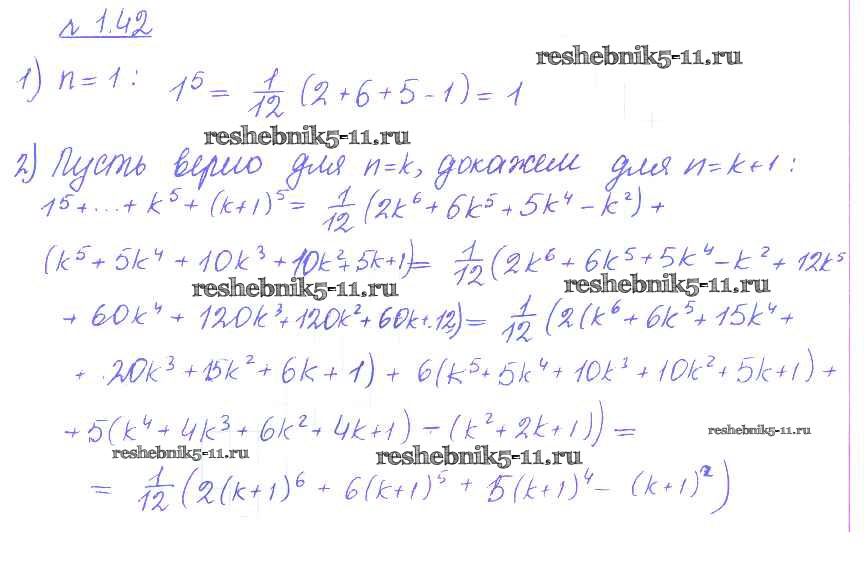 № 1.42
reshebnik5-11.ru
1) n = 1 : 1⁵ = 1/12 (2 + 6 + 5 - 1) = 1
reshebnik5-11.ru
2) Пусть верно для n=k, докажем для n=k+1 :
1⁵+...+ k⁵ + (k+1)⁵ = 1/12 (2k⁶ + 6k⁵ + 5k⁴ - k²) +
(k⁵ + 5k⁴ + 10k³ + 10k² + 5k+1) = 1/12 (2k⁶ + 6k⁵ + 5k⁴ - k² + 12k⁵
reshebnik5-11.ru reshebnik5-11.ru
+ 60k⁴ + 120k³ + 120k² + 60k + 12) = 1/12 (2(k⁶ + 6k⁵ + 15k⁴ +
+ 20k³ + 15k² + 6k + 1) + 6(k⁵ + 5k⁴ + 10k³ + 10k² + 5k+1) +
+ 5(k⁴ + 4k³ + 6k² + 4k+1) - (k² + 2k + 1)) =
reshebnik5-11.ru
reshebnik5-11.ru reshebnik5-11.ru
= 1/12 (2(k+1)⁶ + 6(k+1)⁵ + 5(k+1)⁴ - (k+1)²)